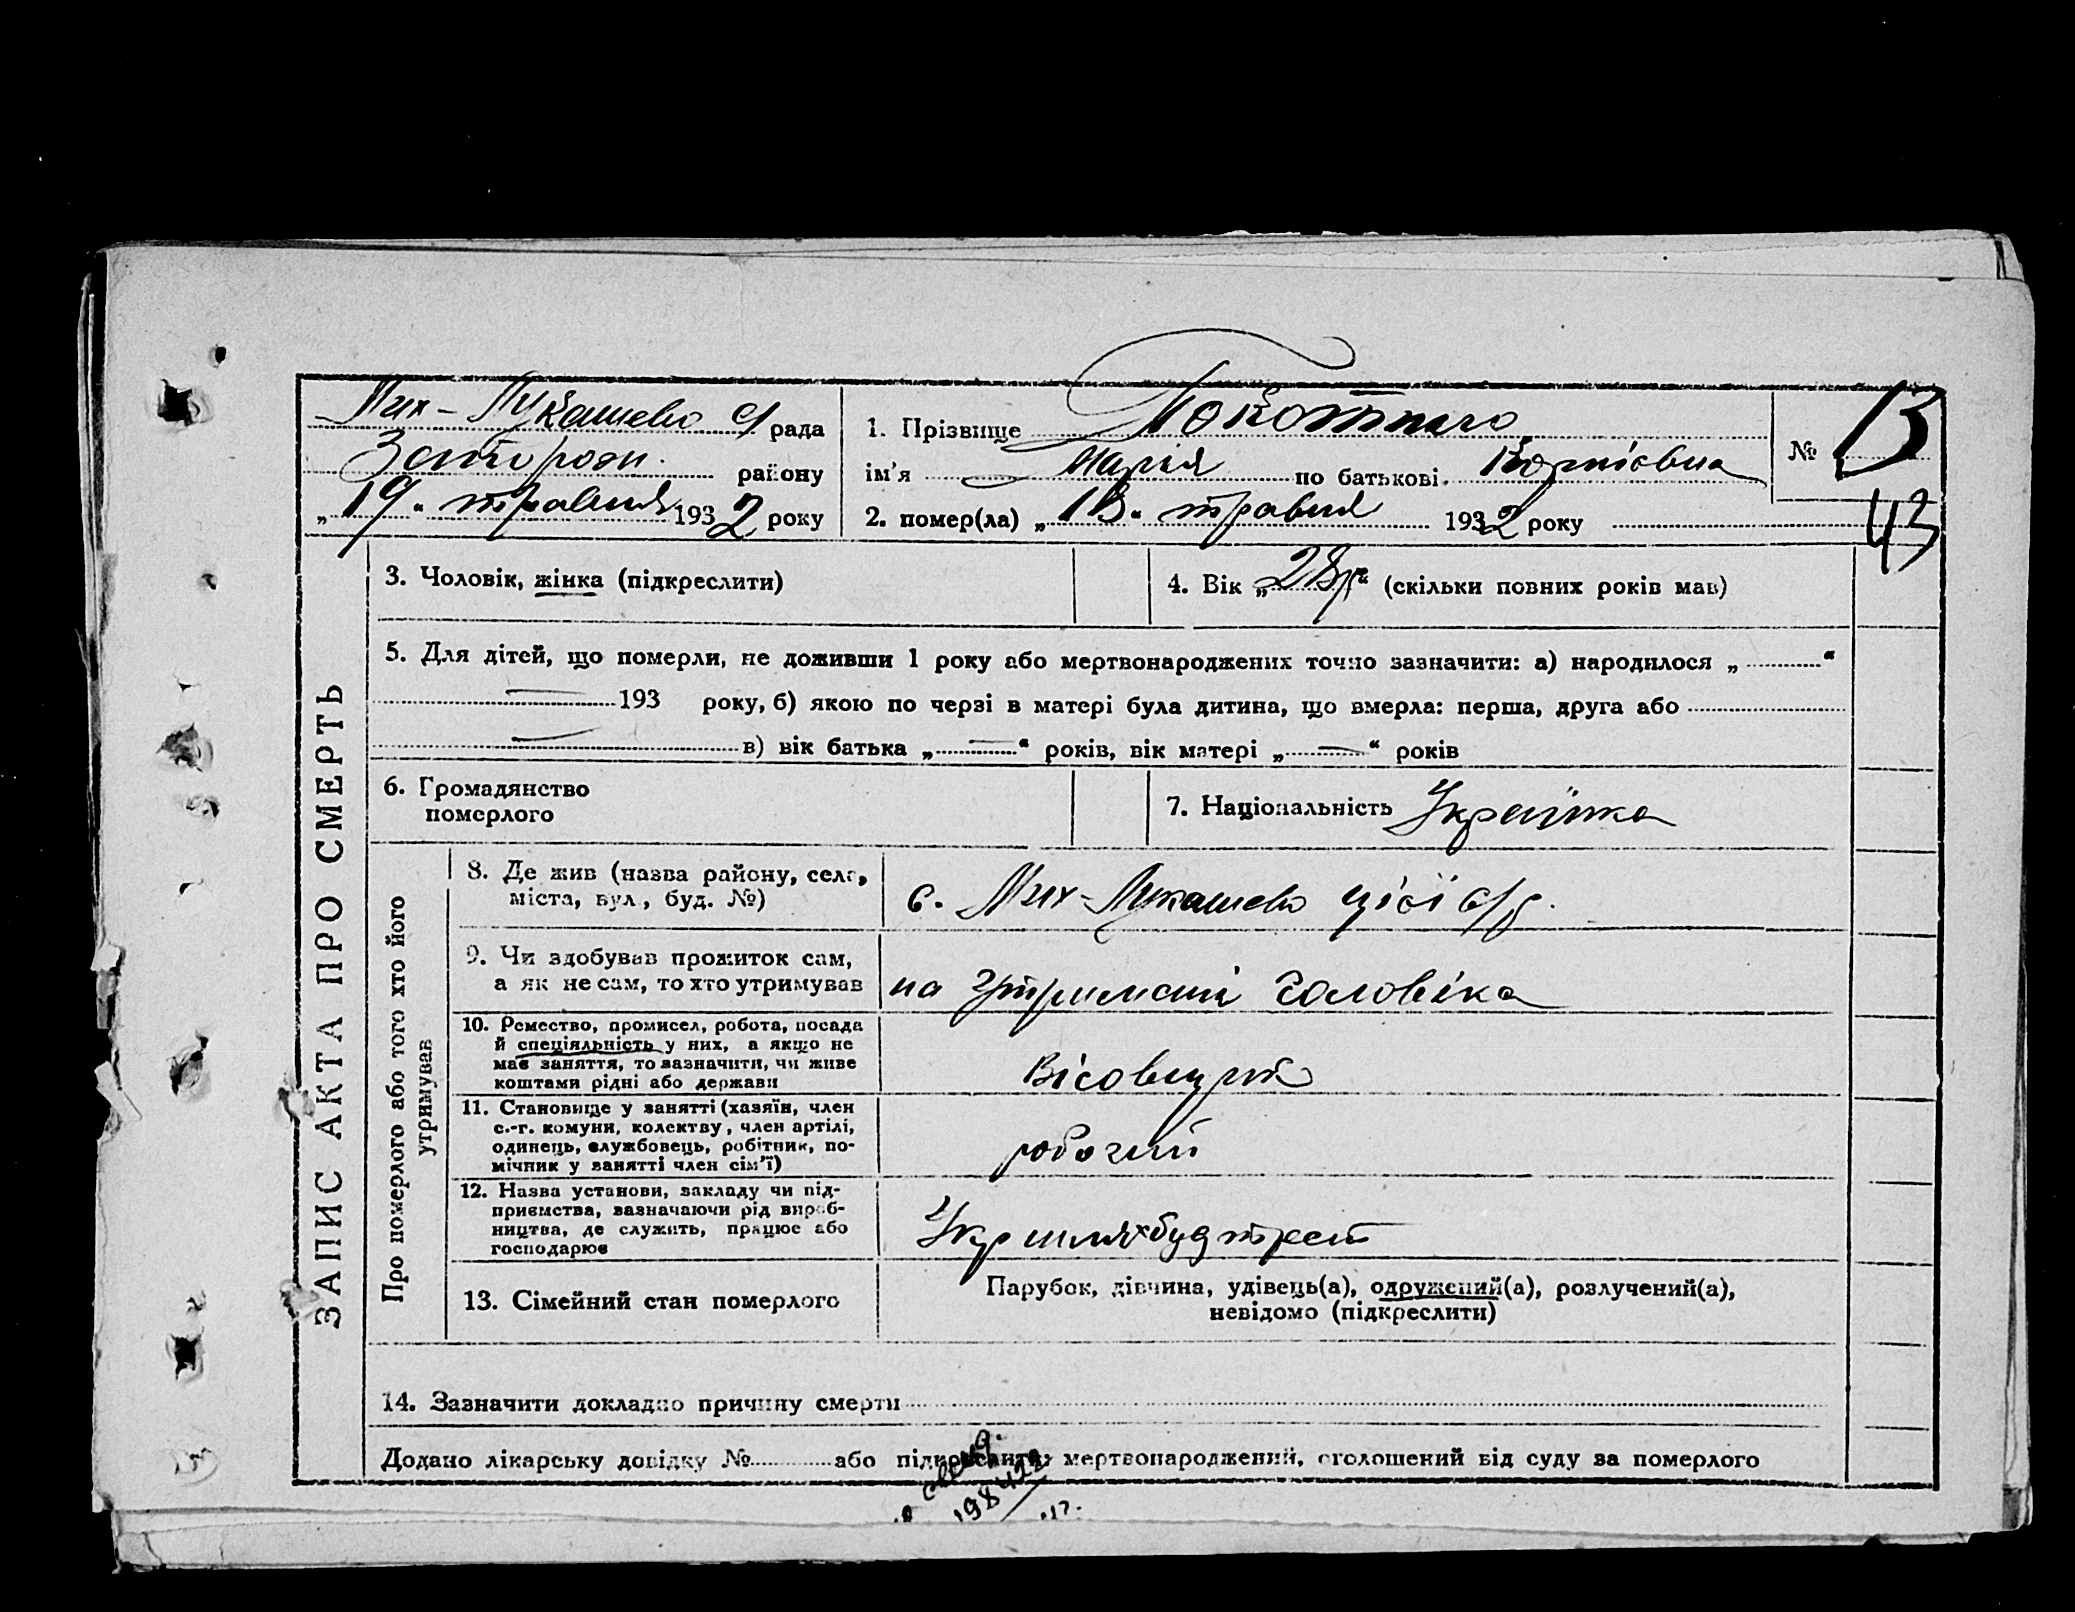 Мих-Лукашево с/ рада
Запорозк. району
„19“ травня 1932 року
1. Прізвище Покотило
ім'я Марія по батькові Корніовна
2. помер(ла) „13“ травня 1932 року
№ 13
43
ЗАПИС АКТА ПРО СМЕРТЬ
3. Чоловік, жінка (підкреслити)
4. Вік „28р“ (скільки повних років мав)
5. Для дітей, що померли, не доживши 1 року або мертвонароджених точно зазначити: а) народилося „ “
193 року, б) якою по черзі в матері була дитина, що вмерла: перша, друга або
в) вік батька „—“ років, вік матері „—“ років
6. Громадянство
померлого
7. Національність Українка
Про померлого або того хто його
утримував
8. Де жив (назва району, села,
міста, вул., буд. №)
с. Мих-Лукашево цієї с/р.
9. Чи здобував прожиток сам,
а як не сам, то хто утримував
на утриманні чоловіка
10. Ремество, промисел, робота, посада
й спеціяльність у них, а якщо не
має заняття, то зазначити, чи живе
коштами рідні або держави
Вісовщик
11. Становище у занятті (хазяїн, член
с.-г. комуни, колектву, член артілі,
одинець, службовець, робітник, по-
мічник у занятті член сім'ї)
робочий
12. Назва установи, закладу чи під-
приємства, зазначаючи рід вироб-
ництва, де служить, працює або
господарює
Укршляхбудтрест
13. Сімейний стан померлого
Парубок, дівчина, удівець(а), одружений(а), розлучений(а),
невідомо (підкреслити)
14. Зазначити докладно причину смерти
Додано лікарську довідку № або підкреслити: мертвонароджений, оголошений від суду за померлого